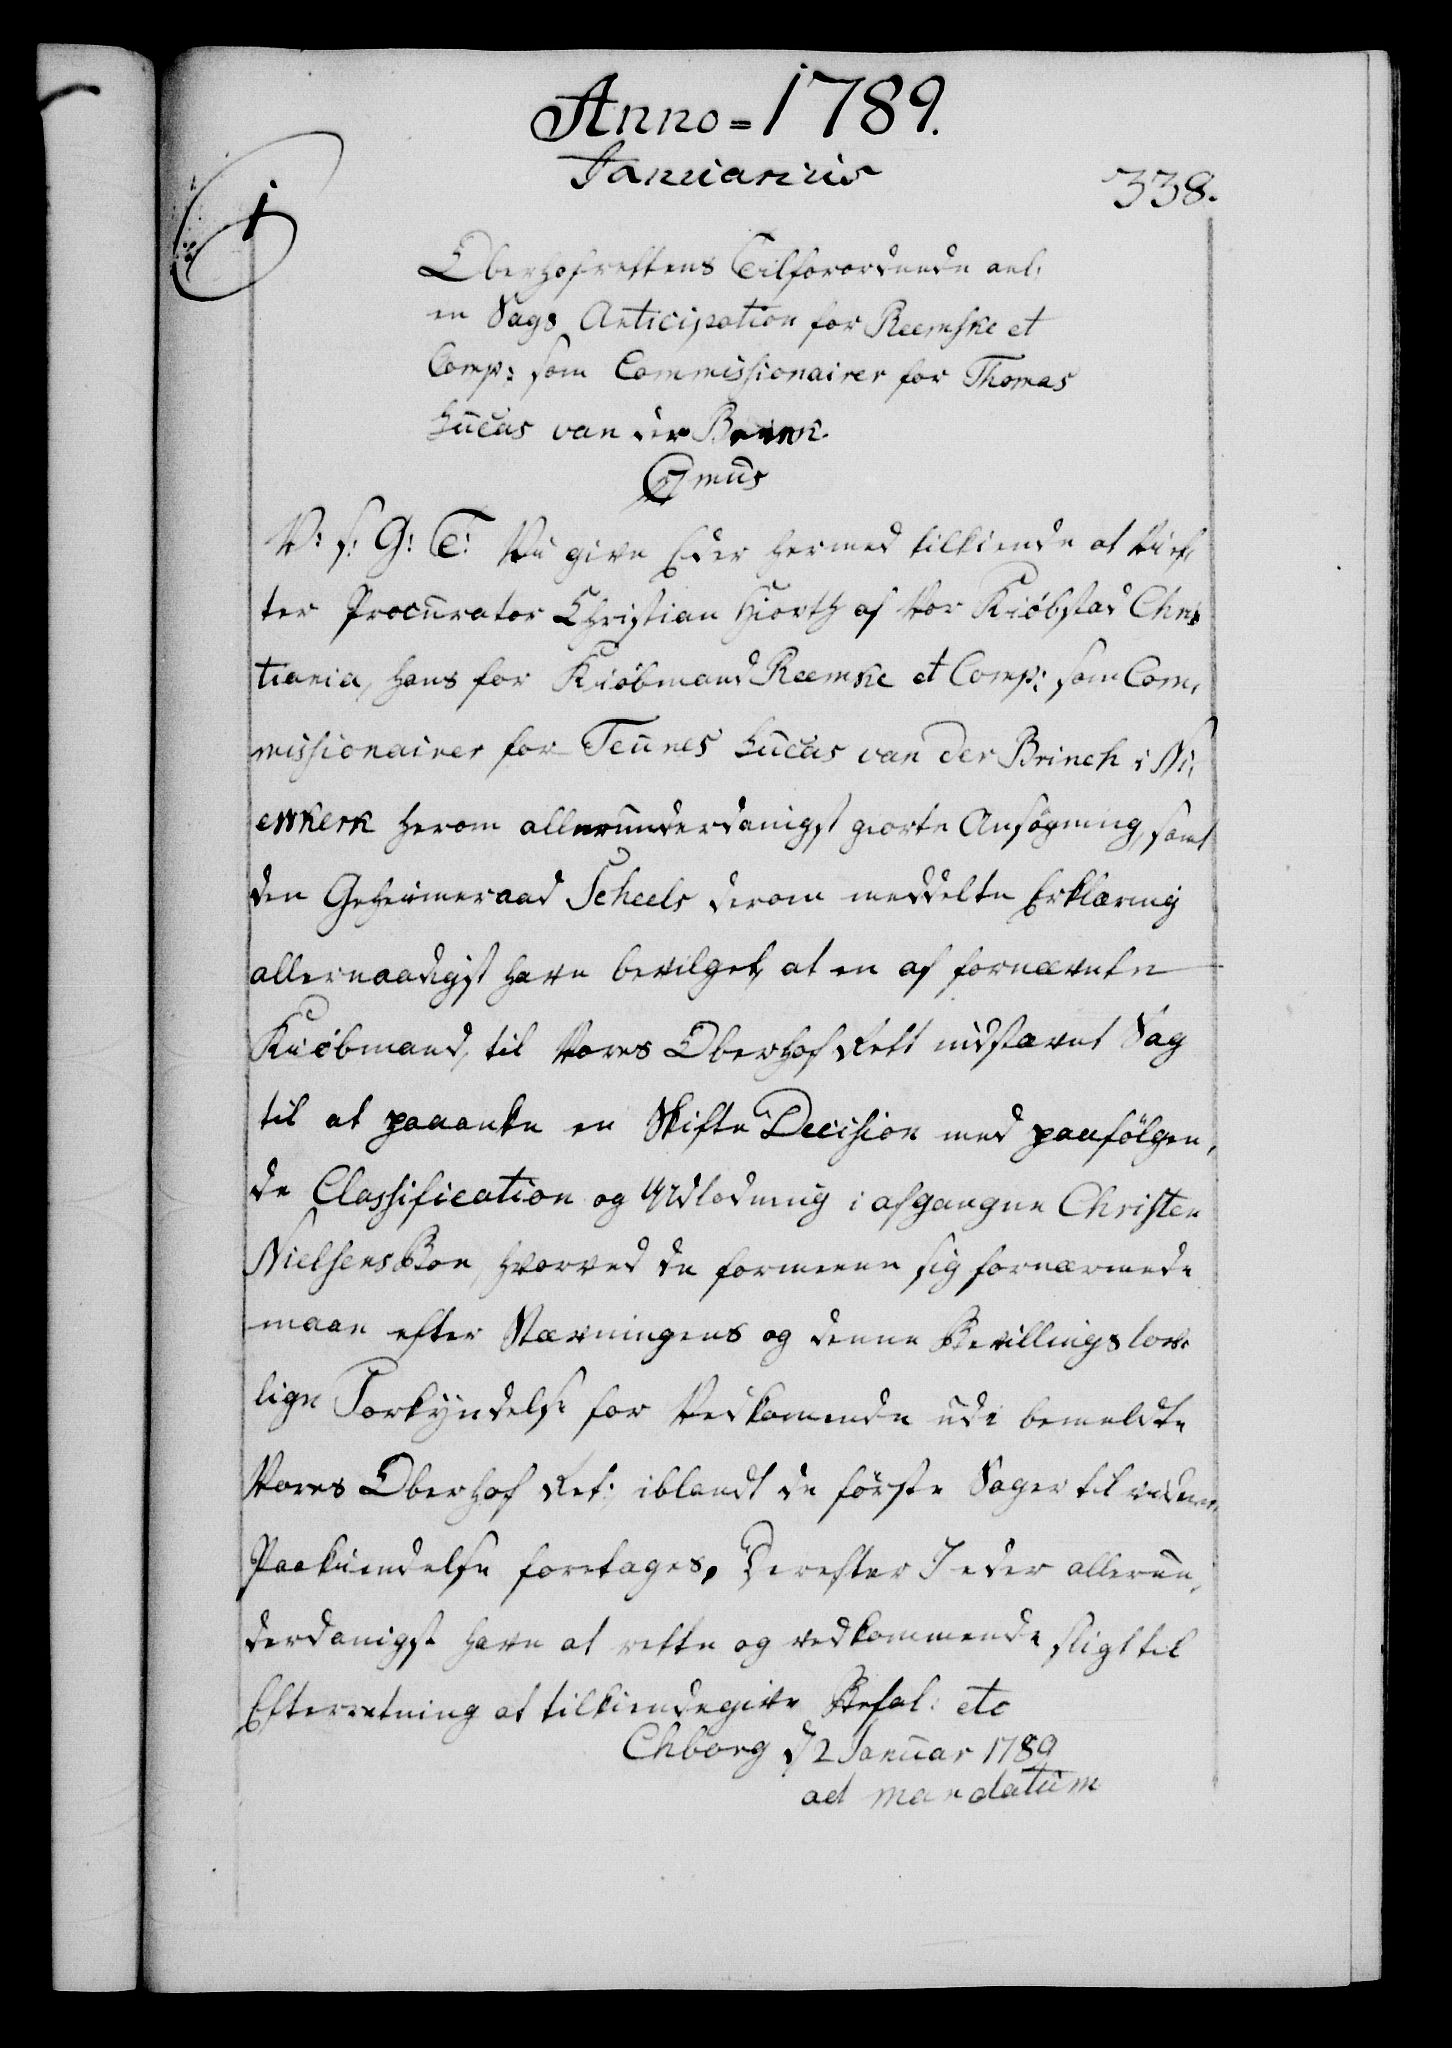 Anno = 1789.
Januarius
338.
1
Oberhofrettens Tilforordnede anl:
en Sags Anticipation for Reemske et
Comp: som Commissionairer for Thomas
Lucas van der Brink.
C7mus
V: s: G: T: Vi give Eder hermed tilkiende at Vi ef,
ter Procurator Christian Hiorth af Vor Kiøbstad Chris
tiania, hans for Kiøbmand Reemke et Comp: som Com,
missionairer for Teunes Lucas van der Brinch i Ni,
ewkerk herom allerunderdanigst giorte Ansøgning, samt
den Geheimeraad Scheels derom meddelte Erklæring
allernaadigst have bevilget, at en af fornævnte
Kiøbmand, til Vores Oberhof Rett indstævnt Sag
til at paaanke en Skifte Decision med paafølgen,
de Classification og Udlodning i afgangne Christen
Nielsens Boe, hvorved de formeene sig fornærmede
maae efter Stævningens og denne Bevillings lov,
lige Forkyndelse for Vedkommende udi bemeldte
Vores Oberhof Ret, iblandt de første Sager til
Paakiendelse foretages. Derefter I eder allerun,
derdanigst have at rette og vedkommende sligt til
Efterretning at tilkiendegive Befal: etc
Chborg d 2 Januar 1789
ad mandatum